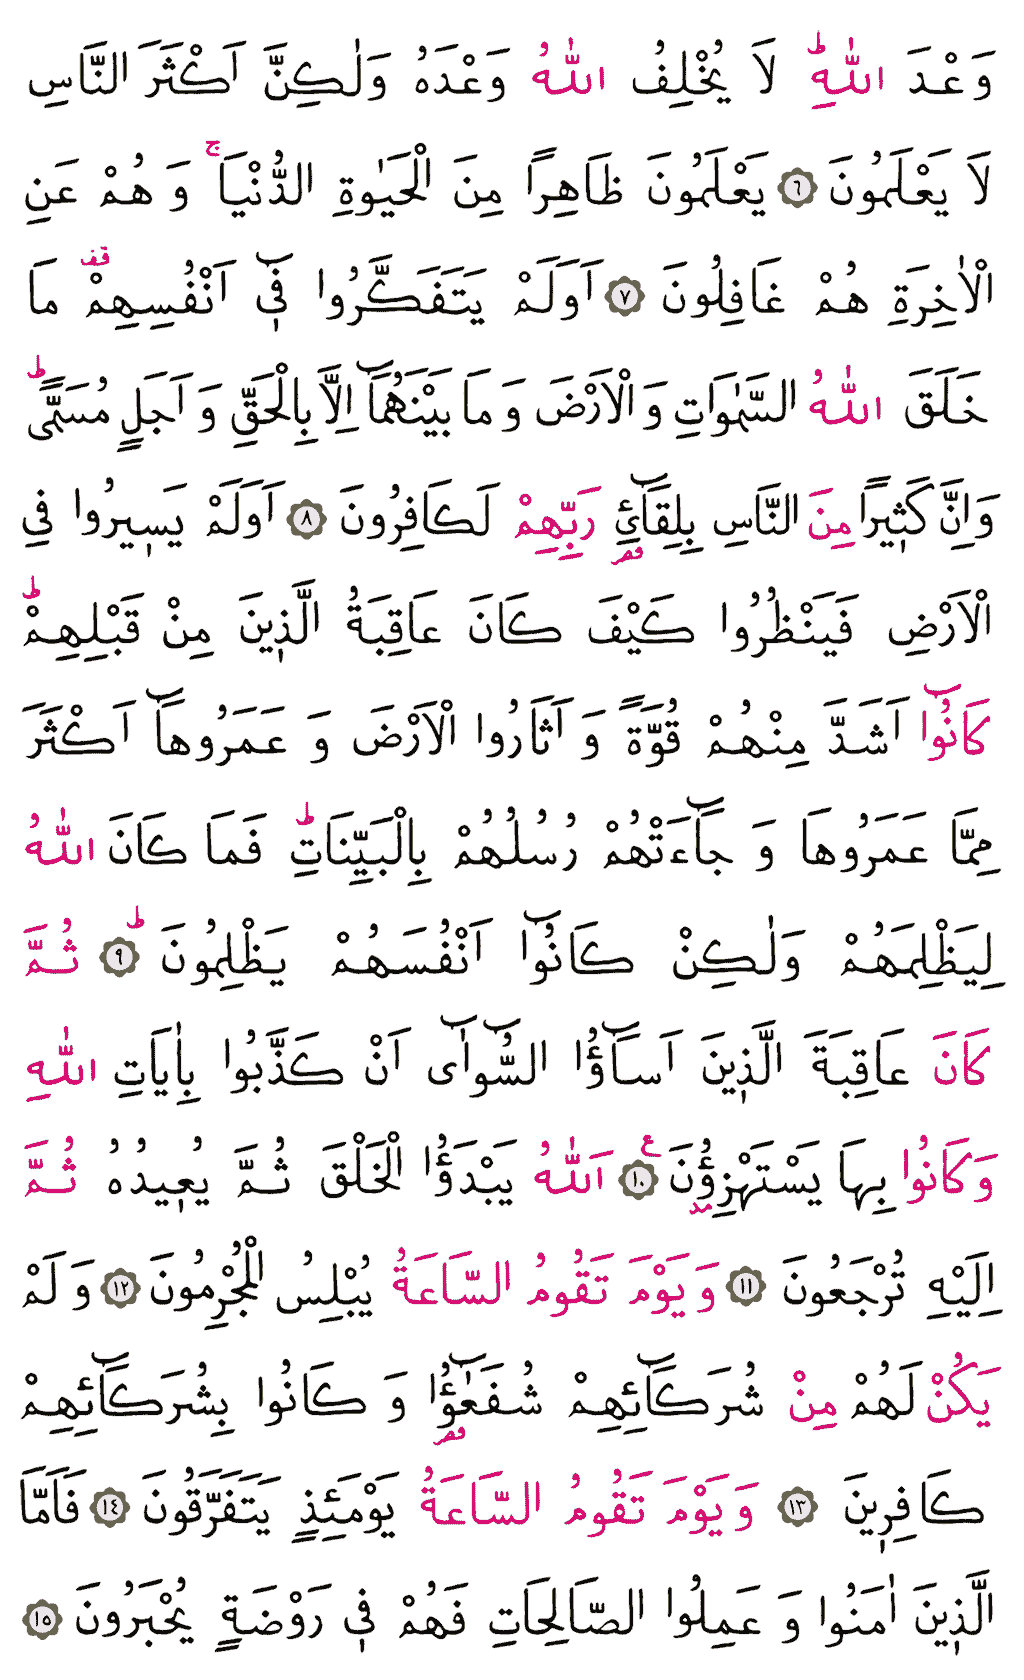 وَعْدَ اللّٰهِؕ لَا يُخْلِفُ اللّٰهُ وَعْدَهُ وَلٰكِنَّ اَكْثَرَ النَّاسِ
لَا يَعْلَمُونَ ﴿٦﴾ يَعْلَمُونَ ظَاهِرًا مِنَ الْحَيٰوةِ الدُّنْيَاۚ وَ هُمْ عَنِ
الْاٰخِرَةِ هُمْ غَافِلُونَ ﴿٧﴾ اَوَلَمْ يَتَفَكَّرُوا فٖٓي اَنْفُسِهِمْ۠ مَا
خَلَقَ اللّٰهُ السَّمٰوَاتِ وَ الْاَرْضَ وَ مَا بَيْنَهُمَٓا اِلَّا بِالْحَقِّ وَ اَجَلٍ مُسَمًّىؕ
وَاِنَّ كَثٖيرًا مِنَ النَّاسِ بِلِقَٓائِ رَبِّهِمْ لَكَافِرُونَ ﴿٨﴾ اَوَلَمْ يَسٖيرُوا فِي
الْاَرْضِ فَيَنْظُرُوا كَيْفَ كَانَ عَاقِبَةُ الَّذٖينَ مِنْ قَبْلِهِمْؕ
كَانُٓوا اَشَدَّ مِنْهُمْ قُوَّةً وَ اَثَارُوا الْاَرْضَ وَ عَمَرُوهَٓا اَكْثَرَ
مِمَّا عَمَرُوهَا وَ جَٓاءَتْهُمْ رُسُلُهُمْ بِالْبَيِّنَاتِؕ فَمَا كَانَ اللّٰهُ
لِيَظْلِمَهُمْ وَلٰكِنْ كَانُٓوا اَنْفُسَهُمْ يَظْلِمُونَؕ ﴿٩﴾ ثُمَّ
كَانَ عَاقِبَةَ الَّذٖينَ اَسَٓاؤُا السُّٓوآٰى اَنْ كَذَّبُوا بِاٰيَاتِ اللّٰهِ
وَكَانُوا بِهَا يَسْتَهْزِؤُ۫نَ ﴿١٠﴾ اَللّٰهُ يَبْدَؤُا الْخَلْقَ ثُمَّ يُعٖيدُهُ ثُمَّ
اِلَيْهِ تُرْجَعُونَ ﴿١١﴾ وَ يَوْمَ تَقُومُ السَّاعَةُ يُبْلِسُ الْمُجْرِمُونَ ﴿١٢﴾ وَ لَمْ
يَكُنْ لَهُمْ مِنْ شُرَكَٓائِهِمْ شُفَعٰٓؤُا وَ كَانُوا بِشُرَكَٓائِهِمْ
كَافِرٖينَ ﴿١٣﴾ وَ يَوْمَ تَقُومُ السَّاعَةُ يَوْمَئِذٍ يَتَفَرَّقُونَ ﴿١٤﴾ فَاَمَّا
الَّذٖينَ اٰمَنُوا وَ عَمِلُوا الصَّالِحَاتِ فَهُمْ فٖي رَوْضَةٍ يُحْبَرُونَ ﴿١٥﴾